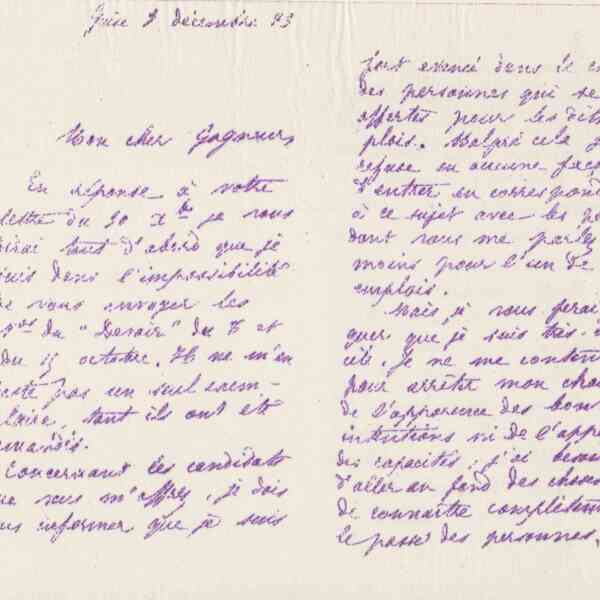 Guise 9 décembre 83
Mon cher Gagneur,
En réponse à votre
lettre du 20 Xbre je vous
dirai tout d'abord que je
suis dans l'impossibilité
de vous envoyer les
nos du "Devoir" du 7 et
du 15 octobre. Il ne m'en
reste pas un seul exem-
plaire, tant ils ont été
demandés.
Concernant les candidats
que vous m'offrez, je dois
vous informer que je suis
fort avancé dans le c
des personnes qui se
offertes pour les dits
plois. Malgré cela je
refuse en aucune faç
d'entrer en correspond
à ce sujet avec les pe
dont vous me parlez
moins pour l'un de
emplois.
Mais je vous ferai
quer que je suis très
cile. Je ne me conten
pour arrêter mon choi
de l'apparence des bon
intentions ni de l'appa
des capacités; j'ai besoi
d'aller au fond des chos
de connaître complètem
le passé des personnes,